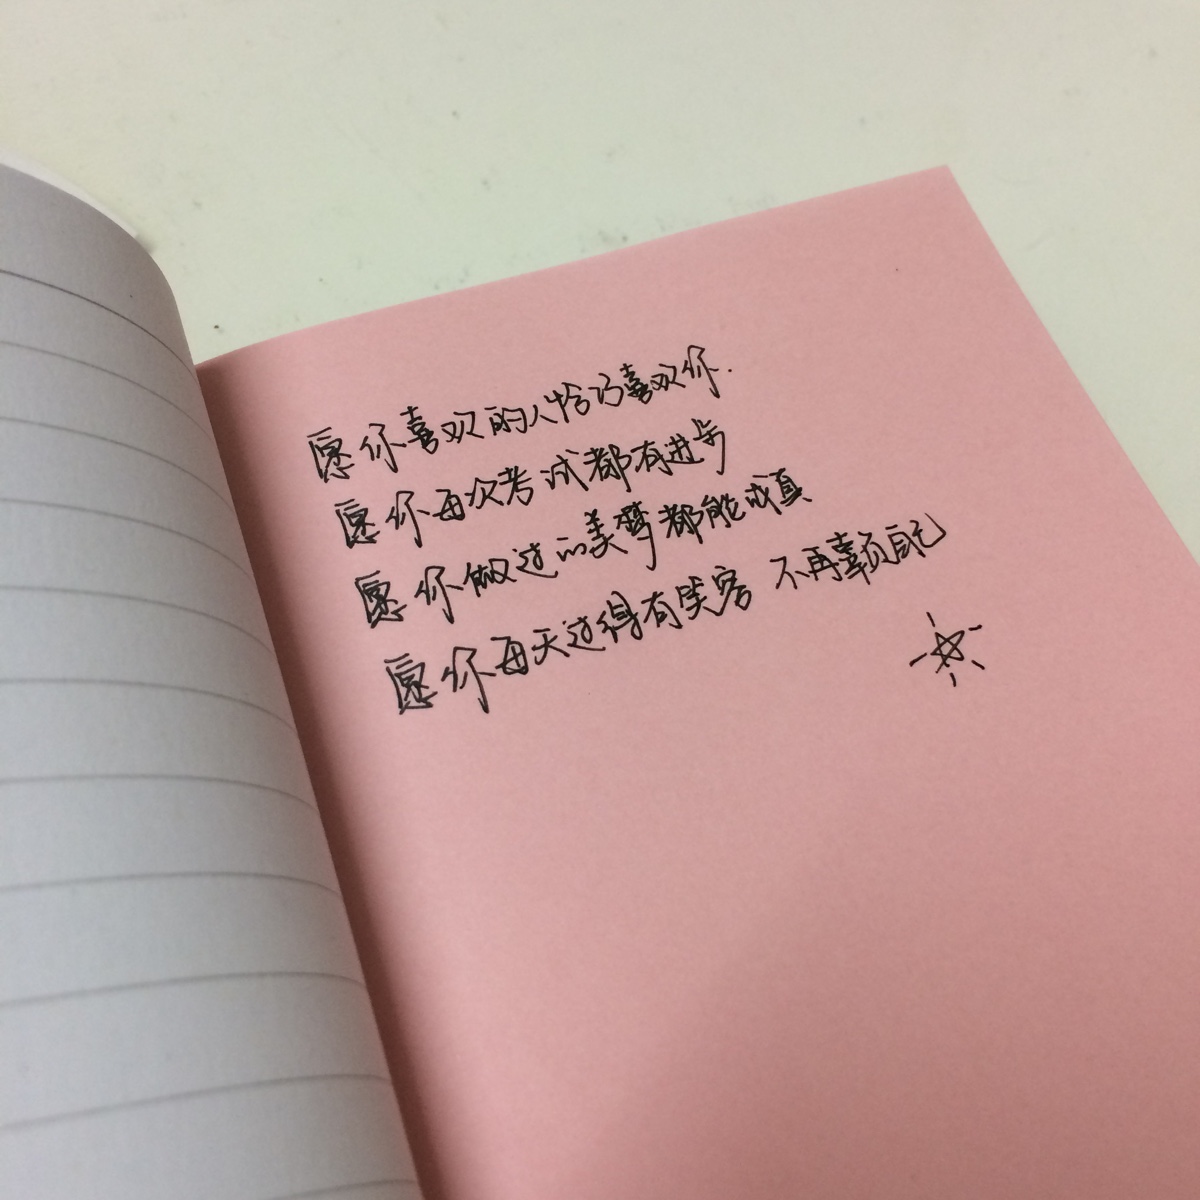 愿你喜欢的人恰巧喜欢你.
愿你每次考试都有进步
愿你做过的美梦都能成真
愿你每天过得有笑容 不再辜负自己